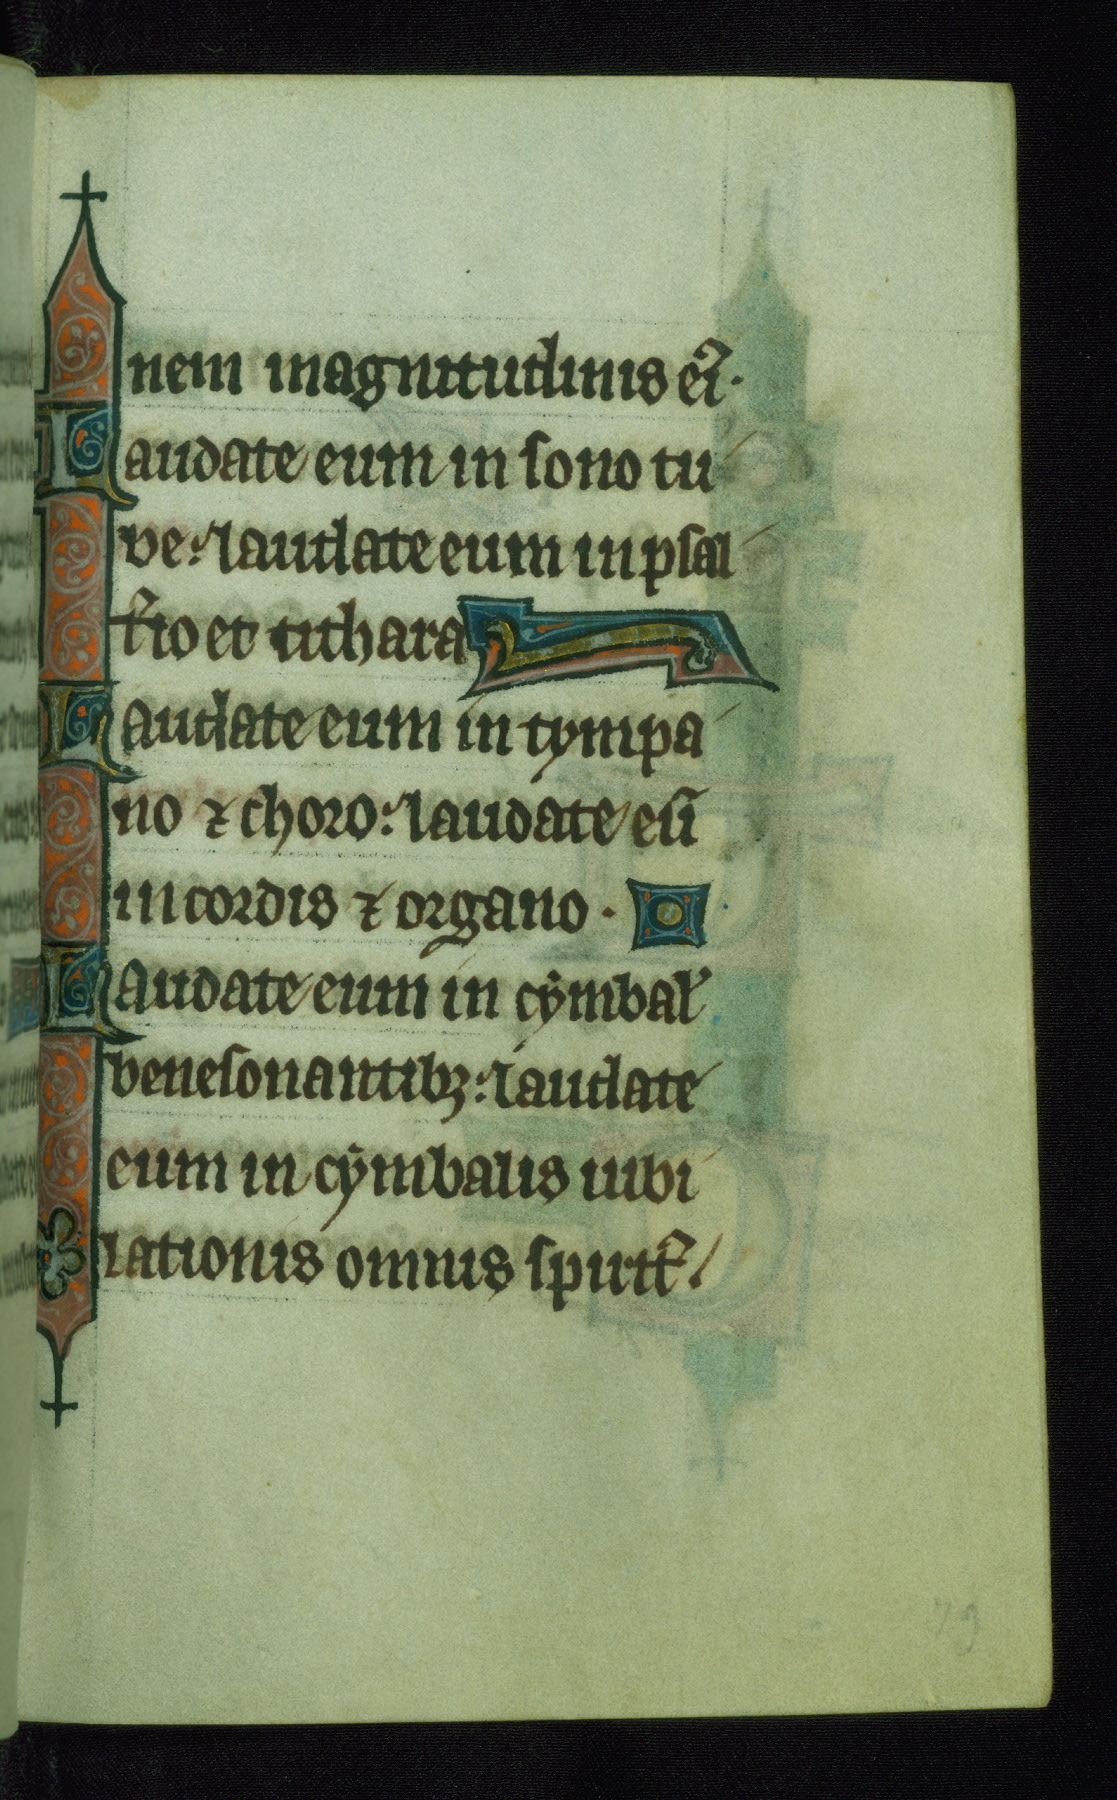 nem magnitudinis ei᷒.
Laudate eum in sono tu
be: laudate eum in psal
t̾io et cithara
Laudate eum in tympa
no ⁊ choro: laudate eū
in cordis ⁊ organo.
Laudate eum in cymbal̕
benesonantibꝫ: laudate
eum in cymbalis iubi
lationis omnis spirit᷒.
79